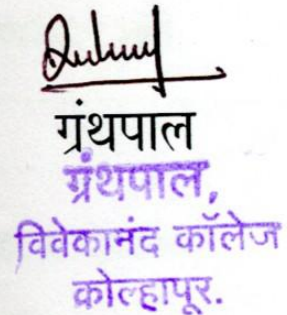 ग्रंथपाल
ग्रंथपाल,
विवेकानंद कॉलेज
कोल्हापूर.